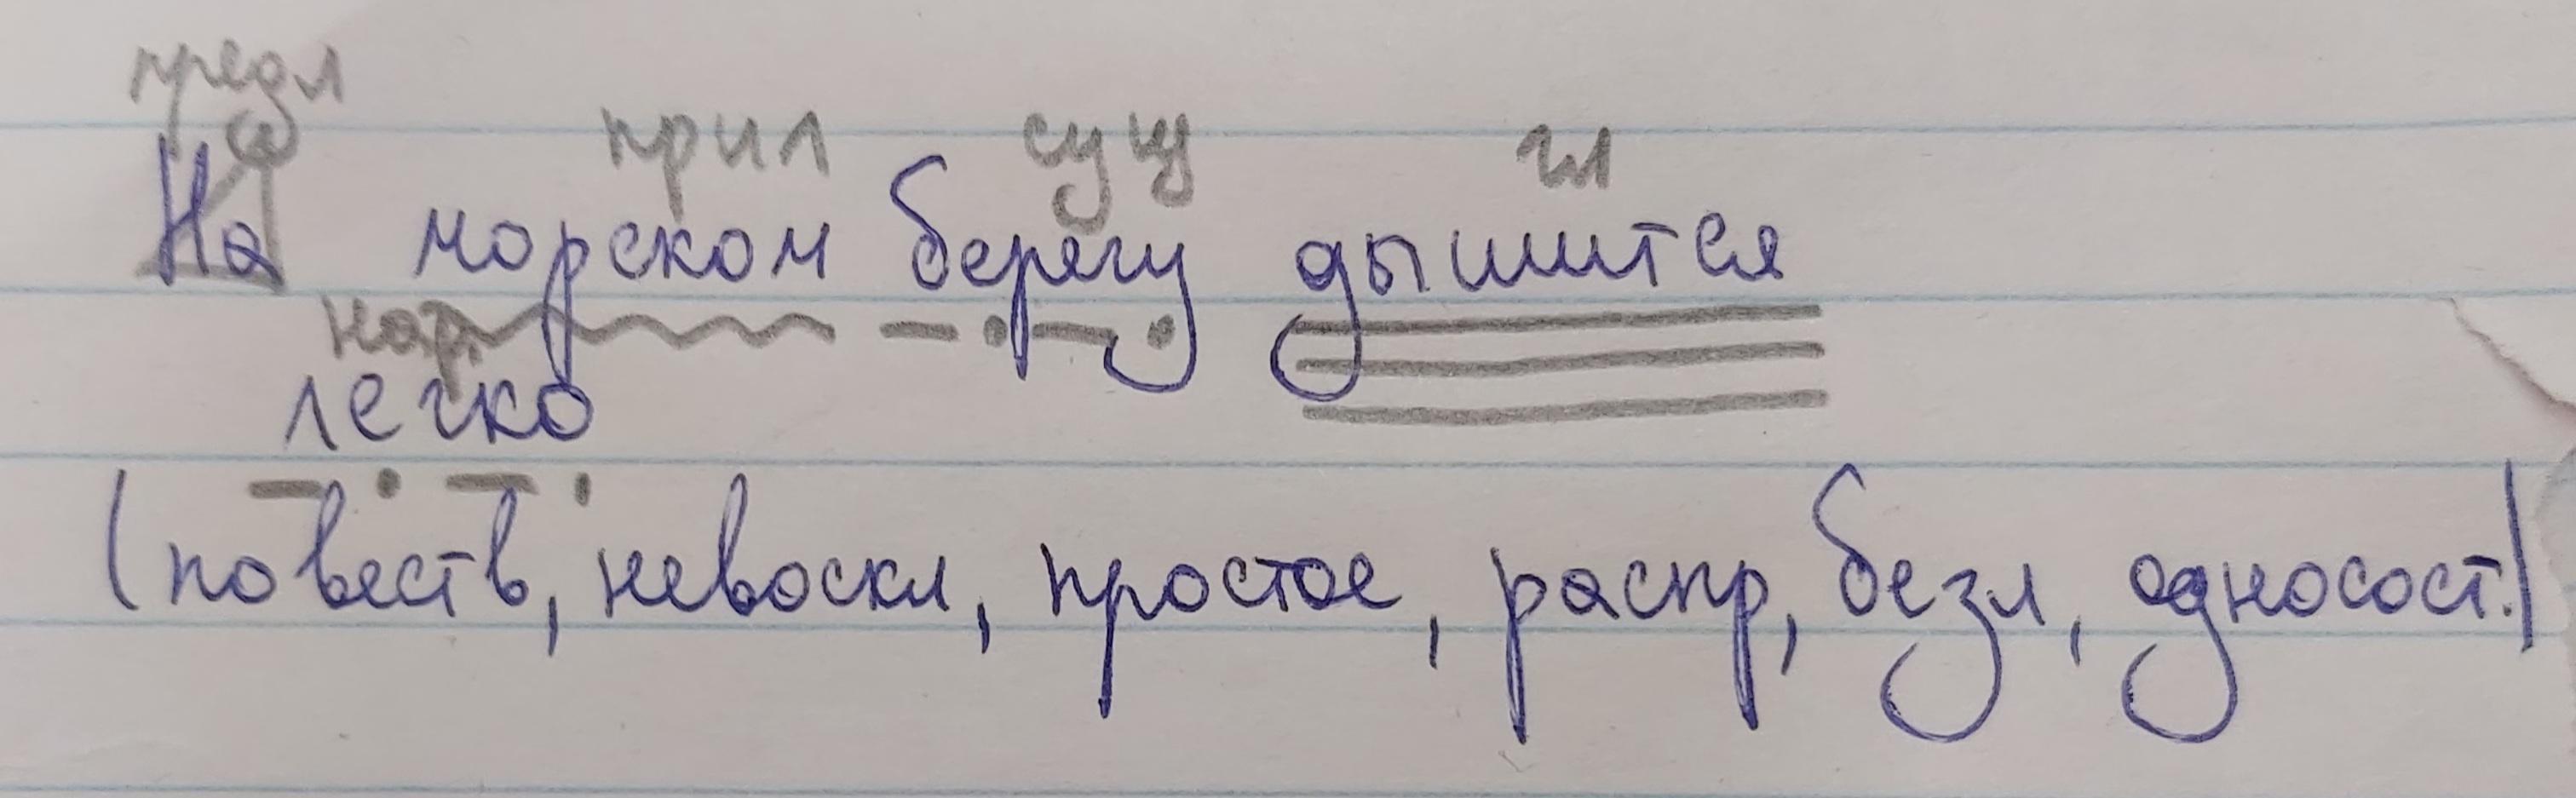 предл
прил сущ гл
На морском берегу дышится
нар
легко
(повеств, невоскл, простое, распр, безл, односост.)